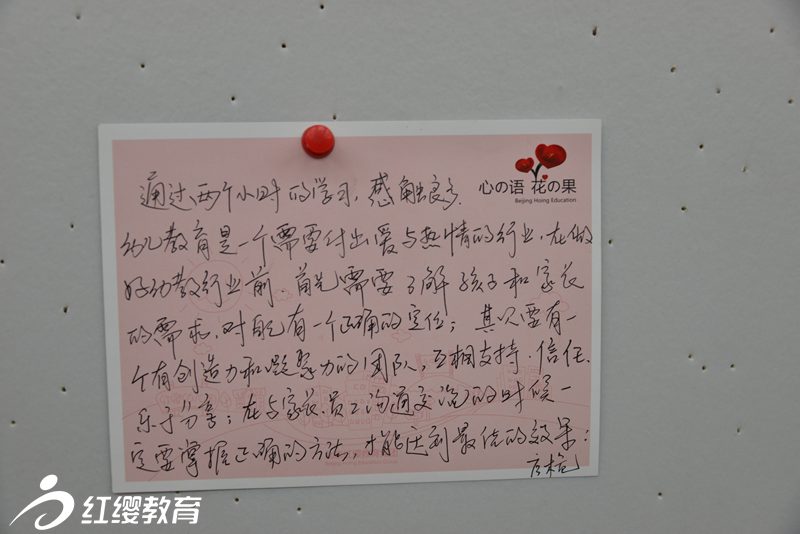 心の语 花の果
Beijing Hoing Education
通过两个小时的学习，感触很多。
幼儿教育是一个需要付出爱与热情的行业，在做
好幼教行业前，首先需要了解孩子和家长
的需求，对自己有一个正确的定位；其次要有一
个有创造力和凝聚力的团队，互相支持、信任、
乐于分享；在与家长、员工沟通交流的时候一
定要掌握正确的方法，才能达到最佳的效果；
红缨教育